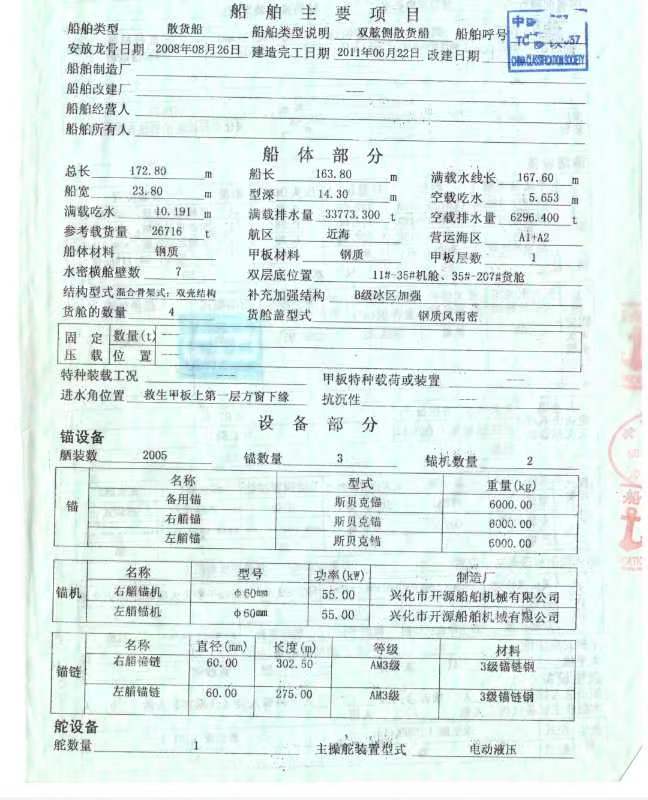 船舶主要项目
船舶类型 散货船 船舶类型说明 双舷侧散货船 船舶呼号
安放龙骨日期 2008年08月26日 建造完工日期 2011年06月22日 改建日期
CHINA CLASSIFICATION SOCIETY
船舶制造厂
船舶改建厂 ---
船舶经营人
船舶所有人
船体部分
总长 172.80 m 船长 163.80 m 满载水线长 167.60 m
船宽 23.80 m 型深 14.30 m 空载吃水 5.653 m
满载吃水 10.191 m 满载排水量 33773.300 t 空载排水量 6296.400 t
参考载货量 26716 t 航区 近海 营运海区 A1+A2
船体材料 钢质 甲板材料 钢质 甲板层数 1
水密横舱壁数 7 双层底位置 11#-35#机舱、35#-207#货舱
结构型式 混合骨架式；双壳结构 补充加强结构 B级冰区加强
货舱的数量 4 货舱盖型式 钢质风雨密
固定 数量(t) ---
压载 位置 ---
特种装载工况 --- 甲板特种载荷或装置 ---
进水角位置 救生甲板上第一层方窗下缘 抗沉性 ---
设备部分
锚设备
舾装数 2005 锚数量 3 锚机数量 2
锚 名称 型式 重量(kg)
备用锚 斯贝克锚 6000.00
右艏锚 斯贝克锚 6000.00
左艏锚 斯贝克锚 6000.00
锚机 名称 型号 功率(kW) 制造厂
右艏锚机 φ60mm 55.00 兴化市开源船舶机械有限公司
左艏锚机 φ60mm 55.00 兴化市开源船舶机械有限公司
锚链 名称 直径(mm) 长度(m) 等级 材料
右艏锚链 60.00 302.50 AM3级 3级锚链钢
左艏锚链 60.00 275.00 AM3级 3级锚链钢
舵设备
舵数量 1 主操舵装置型式 电动液压